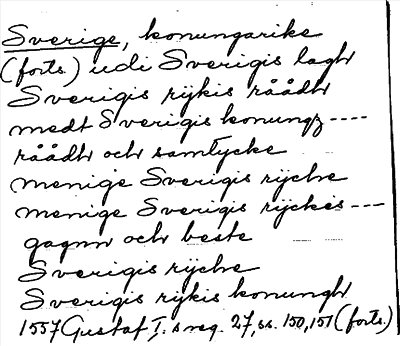 Sverige, konungarike
(forts.) udi Sverigis lagh
Sverigis rijkis råådh
medt Sverigis konungz ----
råådh och samtycke
menige Sverigis rijche
menige Sverigis rijckes ---
gagnn och beste
Sverigis rijche
Sverigis rijkis konungh
1557 Gustaf I:s reg. 27, ss. 150, 151 (forts.)